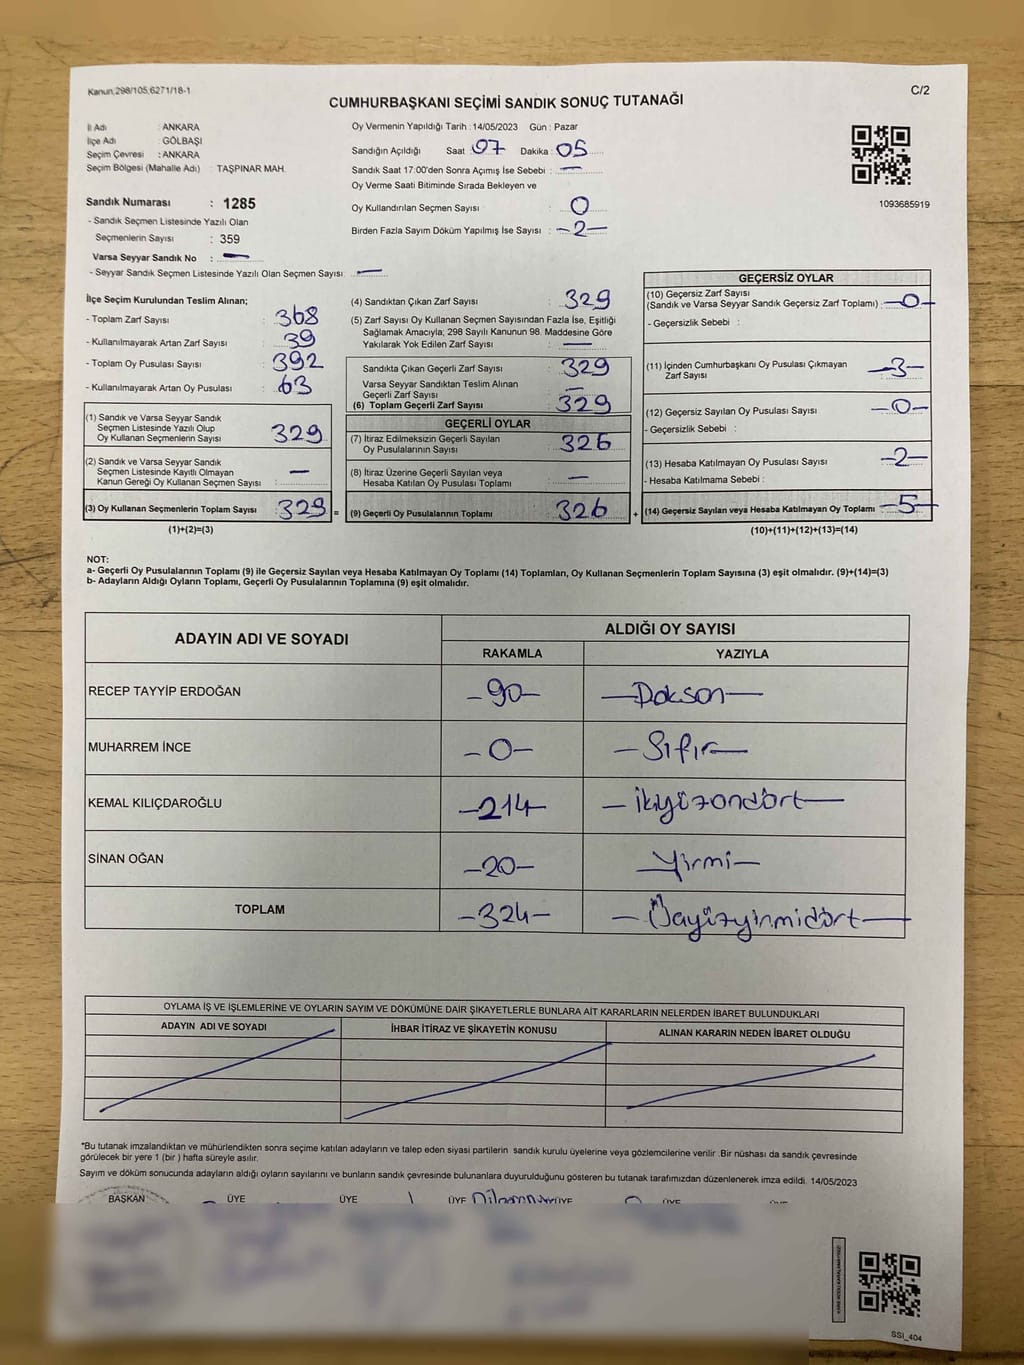 Kanun;298/105,6271/18-1
C/2
CUMHURBAŞKANI SEÇİMİ SANDIK SONUÇ TUTANAĞI
İl Adı : ANKARA
İlçe Adı : GÖLBAŞI
Seçim Çevresi : ANKARA
Seçim Bölgesi (Mahalle Adı) : TAŞPINAR MAH.
Sandık Numarası : 1285
- Sandık Seçmen Listesinde Yazılı Olan
Seçmenlerin Sayısı : 359
Varsa Seyyar Sandık No : —
- Seyyar Sandık Seçmen Listesinde Yazılı Olan Seçmen Sayısı: —
Oy Vermenin Yapıldığı Tarih : 14/05/2023 Gün : Pazar
Sandığın Açıldığı Saat : 07 Dakika : 05
Sandık Saat 17:00'den Sonra Açımış İse Sebebi : —
Oy Verme Saati Bitiminde Sırada Bekleyen ve
Oy Kullandırılan Seçmen Sayısı : 0
Birden Fazla Sayım Döküm Yapılmış İse Sayısı : -2-
1093685919
İlçe Seçim Kurulundan Teslim Alınan;
- Toplam Zarf Sayısı : 368
- Kullanılmayarak Artan Zarf Sayısı : 39
- Toplam Oy Pusulası Sayısı : 392
- Kullanılmayarak Artan Oy Pusulası : 63
(1) Sandık ve Varsa Seyyar Sandık
Seçmen Listesinde Yazılı Olup
Oy Kullanan Seçmenlerin Sayısı 329
(2) Sandık ve Varsa Seyyar Sandık
Seçmen Listesinde Kayıtlı Olmayan
Kanun Gereği Oy Kullanan Seçmen Sayısı : —
(3) Oy Kullanan Seçmenlerin Toplam Sayısı 329 =
(1)+(2)=(3)
(4) Sandıktan Çıkan Zarf Sayısı : 329
(5) Zarf Sayısı Oy Kullanan Seçmen Sayısından Fazla İse, Eşitliği
Sağlamak Amacıyla; 298 Sayılı Kanunun 98. Maddesine Göre
Yakılarak Yok Edilen Zarf Sayısı : —
Sandıkta Çıkan Geçerli Zarf Sayısı : 329
Varsa Seyyar Sandıktan Teslim Alınan
Geçerli Zarf Sayısı : —
(6) Toplam Geçerli Zarf Sayısı : 329
GEÇERLİ OYLAR
(7) İtiraz Edilmeksizin Geçerli Sayılan
Oy Pusulalarının Sayısı : 326
(8) İtiraz Üzerine Geçerli Sayılan veya
Hesaba Katılan Oy Pusulası Toplamı : —
(9) Geçerli Oy Pusulalarının Toplamı 326 +
GEÇERSİZ OYLAR
(10) Geçersiz Zarf Sayısı
(Sandık ve Varsa Seyyar Sandık Geçersiz Zarf Toplamı) : -0-
- Geçersizlik Sebebi :
(11) İçinden Cumhurbaşkanı Oy Pusulası Çıkmayan
Zarf Sayısı -3-
(12) Geçersiz Sayılan Oy Pusulası Sayısı -0-
- Geçersizlik Sebebi :
(13) Hesaba Katılmayan Oy Pusulası Sayısı -2-
- Hesaba Katılmama Sebebi :
(14) Geçersiz Sayılan veya Hesaba Katılmayan Oy Toplamı -5-
(10)+(11)+(12)+(13)=(14)
NOT:
a- Geçerli Oy Pusulalarının Toplamı (9) ile Geçersiz Sayılan veya Hesaba Katılmayan Oy Toplamı (14) Toplamları, Oy Kullanan Seçmenlerin Toplam Sayısına (3) eşit olmalıdır. (9)+(14)=(3)
b- Adayların Aldığı Oyların Toplamı, Geçerli Oy Pusulalarının Toplamına (9) eşit olmalıdır.
ADAYIN ADI VE SOYADI
ALDIĞI OY SAYISI
RAKAMLA YAZIYLA
RECEP TAYYİP ERDOĞAN -90- -Doksan-
MUHARREM İNCE -0- -Sıfır-
KEMAL KILIÇDAROĞLU -214- -ikiyüzondört-
SİNAN OĞAN -20- -Yirmi-
TOPLAM -324- -Üçyüzyirmidört-
OYLAMA İŞ VE İŞLEMLERİNE VE OYLARIN SAYIM VE DÖKÜMÜNE DAİR ŞİKAYETLERLE BUNLARA AİT KARARLARIN NELERDEN İBARET BULUNDUKLARI
ADAYIN ADI VE SOYADI İHBAR İTİRAZ VE ŞİKAYETİN KONUSU ALINAN KARARIN NEDEN İBARET OLDUĞU
*Bu tutanak imzalandıktan ve mühürlendikten sonra seçime katılan adayların ve talep eden siyasi partilerin sandık kurulu üyelerine veya gözlemcilerine verilir .Bir nüshası da sandık çevresinde
görülecek bir yere 1 (bir ) hafta süreyle asılır.
Sayım ve döküm sonucunda adayların aldığı oyların sayılarını ve bunların sandık çevresinde bulunanlara duyurulduğunu gösteren bu tutanak tarafımızdan düzenlenerek imza edildi. 14/05/2023
BAŞKAN ÜYE ÜYE ÜYE ÜYE ÜYE
SSI_404